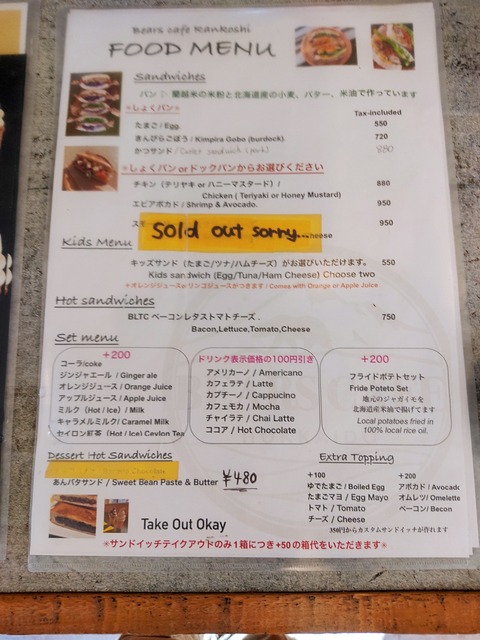 Bears cafe Rankoshi
FOOD MENU
Sandwiches
パン ▷ 蘭越米の米粉と北海道産の小麦、バター、米油で作っています
✳しょくパン✳
Tax-included
たまご / Egg. 550
きんぴらごぼう / Kimpira Gobo (burdock). 720
かつサンド / Cutlet sandwich (pork) 880
✳しょくパン or ドックパンからお選びください
チキン（テリヤキ or ハニーマスタード） / 880
Chicken ( Teriyaki or Honey Mustard)
エビアボカド / Shrimp & Avocado. 950
ス 950
Sold out sorry...
heese
Kids Menu
キッズサンド（たまご/ツナ/ハムチーズ）がお選びいただけます。 550
Kids sandwich (Egg/Tuna/Ham Cheese) Choose two
✳オレンジジュースor リンゴジュースがつきます / Comes with Orange or Apple Juice
Hot sandwiches
BLTC ベーコンレタストマトチーズ . 750
Bacon,Lettuce,Tomato,Cheese
Set menu
+200
コーラ/coke
ジンジャエール / Ginger ale
オレンジジュース / Orange Juice
アップルジュース / Apple Juice
ミルク（Hot / Ice）/ Milk
キャラメルミルク/ Caramel Milk
セイロン紅茶（Hot / Ice) Ceylon Tea
ドリンク表示価格の100円引き
アメリカーノ / Americano
カフェラテ / Latte
カプチーノ / Cappucino
カフェモカ / Mocha
チャイラテ / Chai Latte
ココア / Hot Chocolate
+200
フライドポテトセット
Fride Poteto Set
地元のジャガイモを
北海道産米油で揚げてます
Local potatoes fried in
100% local rice oil.
Dessert Hot Sandwiches
Chocolate
あんバタサンド / Sweet Bean Paste & Butter ¥480
Take Out Okay
Extra Topping
+100
ゆでたまご / Boiled Egg
たまごマヨ / Egg Mayo
トマト / Tomato
チーズ / Cheese
+200
アボカド / Avocado
オムレツ/ Omelette
ベーコン/ Becon
350円からカスタムサンドイッチが作れます
✳サンドイッチテイクアウトのみ１箱につき+50の箱代をいただきます✳